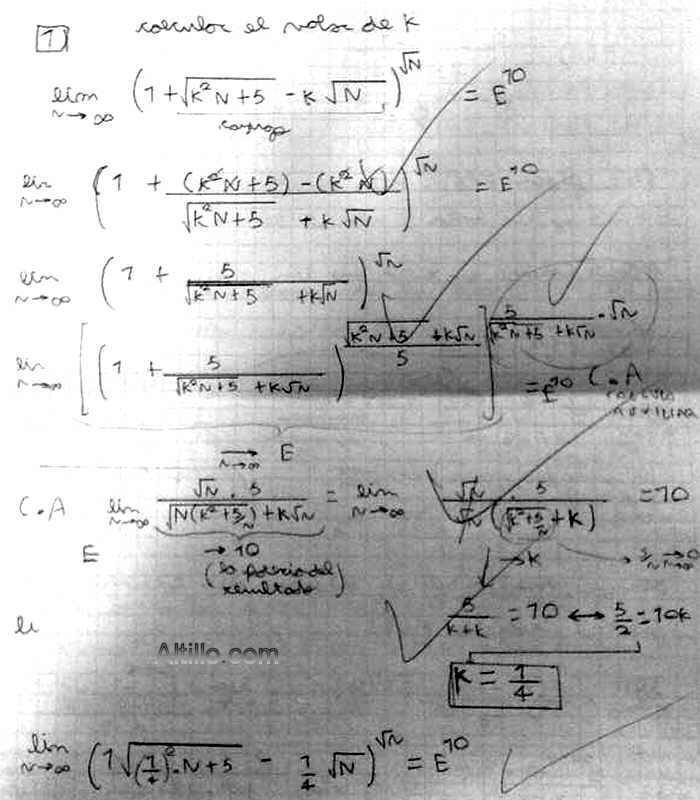 1) calcular el valor de k
lim N→∞ (1 + √(k²N+5) - k√N)^√N = E^10
conjug
lim N→∞ (1 + ((k²N+5) - (k²N)) / (√(k²N+5) + k√N))^√N = E^10
lim N→∞ (1 + 5 / (√(k²N+5) + k√N))^√N
lim N→∞ [(1 + 5 / (√(k²N+5) + k√N))^((√(k²N+5) + k√N) / 5)]^(5 / (√(k²N+5) + k√N) · √N) = E^10 C.A
CALCULO AUXILIAR
N→∞ E
C.A lim N→∞ (√N · 5) / (√(N(k²+5/N)) + k√N) = lim N→∞ (√N · 5) / (√N (√(k²+5/N) + k)) = 10
E → 10 → k 5/N → 0 N→∞
(la potencia del resultado)
5 / (k+k) = 10 ↔ 5/2 = 10k
li
Altillo.com
k = 1/4
lim N→∞ (1 √((1/4)² · N + 5) - 1/4 √N)^√N = E^10